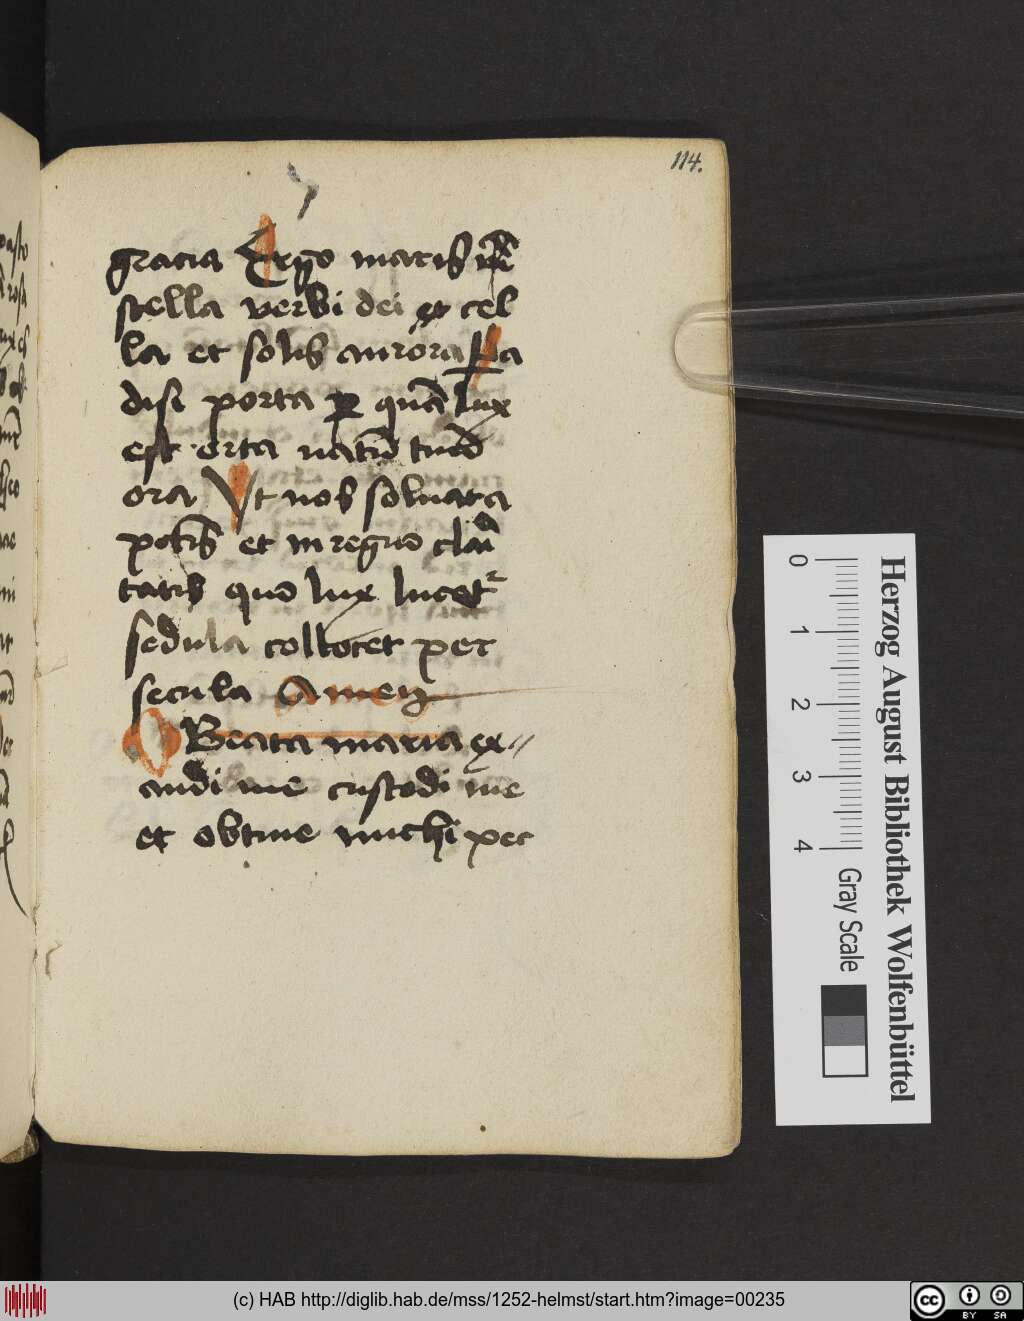 114.
gracia Ergo maris
stella verbi dei et cel
la et solis aurora ꝑa
disi porta ꝑ quā lux
est orta natū tuū
ora Vt nos soluat a
et in regno
tatis quo lux lucet
sedula collocet per
secula Amen
O Beata maria ex//
audi me custodi me
et obtine michi per
0 1 2 3 4
Gray Scale
Herzog August Bibliothek Wolfenbüttel
(c) HAB http://diglib.hab.de/mss/1252-helmst/start.htm?image=00235
cc BY SA